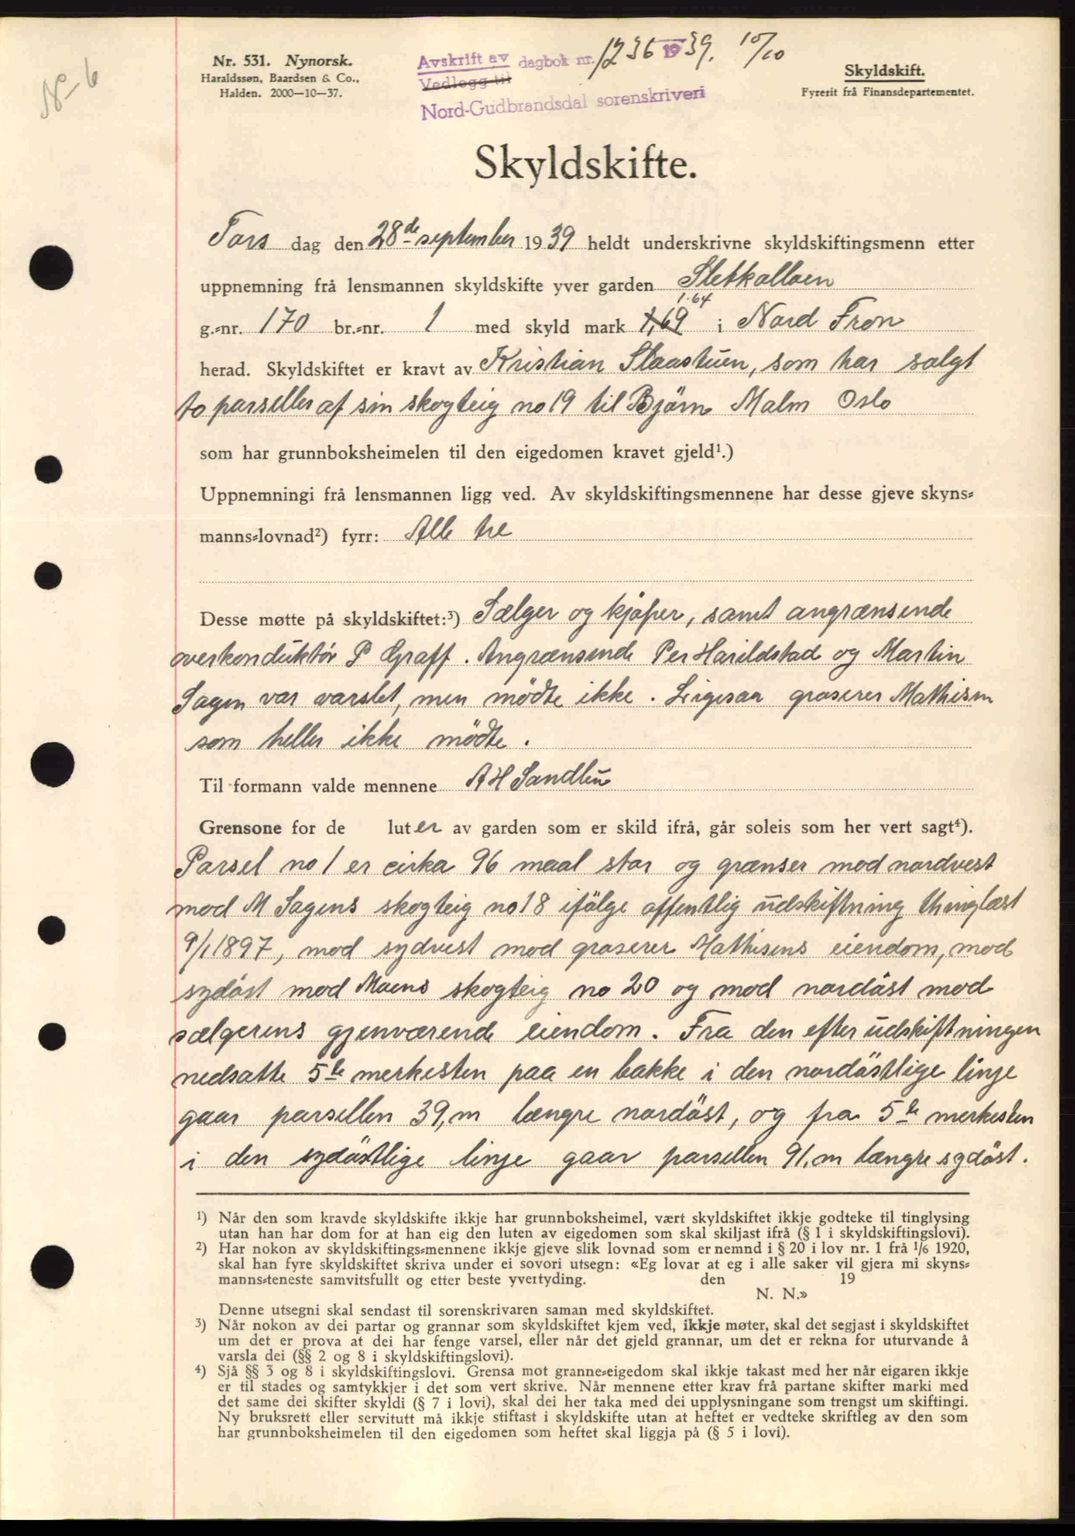 No 6
Nr. 531. Nynorsk.
Haraldssøn, Baardsen & Co.,
Halden. 2000—10—37.
Avskrift av dagbok nr. 1236 1939. 10/10
Vedlegg til
Nord-Gudbrandsdal sorenskriveri
Skyldskift.
Fyrerit frå Finansdepartementet.
Skyldskifte.
Tors dag den 28de september 1939 heldt underskrivne skyldskiftingsmenn etter
uppnemning frå lensmannen skyldskifte yver garden
1.64
g.-nr. 170 br.-nr. 1 med skyld mark 1,69 i Nord Fron
herad. Skyldskiftet er kravt av Kristian Slaastuen, som har solgt
to parseller af sin skogteig no 19 til Bjørn Malm Oslo
som har grunnboksheimelen til den eigedomen kravet gjeld¹.)
Uppnemningi frå lensmannen ligg ved. Av skyldskiftingsmennene har desse gjeve skyns-
manns-lovnad²) fyrr: Alle tre
Desse møtte på skyldskiftet:³) Sælger og kjøper, samt angrænsende
overkonduktør P Graff. Angrænsende Per Harildstad og Martin
Sagen var varslet, men mödte ikke. Ligesaa groserer Mathisen
som heller ikke mödte.
Til formann valde mennene A H Sandbu
Grensone for de luter av garden som er skild ifrå, går soleis som her vert sagt⁴).
Parsel no 1 er cirka 96 maal stor og grænser mod nordvest
mod M Sagens skogteig no 18 ifölge offentlig udskiftning thinglæst
9/1 1897, mod sydvest mod groserer Mathisens eiendom, mod
sydöst mod Moens skogteig no 20 og mod nordöst mod
sælgerens gjenværende eiendom. Fra den efter udskiftningen
nedsatte 5te merkesten paa en bakke i den nordöstlige linje
gaar parsellen 39,m længre nordöst, og fra 5te merkesten
i den sydöstlige linje gaar parsellen 91,m længre sydöst.
¹) Når den som kravde skyldskifte ikkje har grunnboksheimel, vært skyldskiftet ikkje godteke til tinglysing
utan han har dom for at han eig den luten av eigedomen som skal skiljast ifrå (§ 1 i skyldskiftingslovi).
²) Har nokon av skyldskiftings-mennene ikkje gjeve slik lovnad som er nemnd i § 20 i lov nr. 1 frå 1/6 1920,
skal han fyre skyldskiftet skriva under ei sovori utsegn: «Eg lovar at eg i alle saker vil gjera mi skyns-
manns-teneste samvitsfullt og etter beste yvertyding. den 19
N. N.»
Denne utsegni skal sendast til sorenskrivaren saman med skyldskiftet.
³) Når nokon av dei partar og grannar som skyldskiftet kjem ved, ikkje møter, skal det segjast i skyldskiftet
um det er prova at dei har fenge varsel, eller når det gjeld grannar, um det er rekna for uturvande å
varsla dei (§§ 2 og 8 i skyldskiftingslovi).
⁴) Sjå §§ 3 og 8 i skyldskiftingslovi. Grensa mot granne-eigedom skal ikkje takast med her når eigaren ikkje
er til stades og samtykkjer i det som vert skrive. Når mennene etter krav frå partane skifter marki med
det same dei skifter skyldi (§ 7 i lovi), skal dei her taka med dei upplysningane som trengst um skiftingi.
Ny bruksrett eller servitutt må ikkje stiftast i skyldskifte utan at heftet er vedteke skriftleg av den som
har grunnboksheimelen til den eigedomen som heftet skal liggja på (§ 5 i lovi).